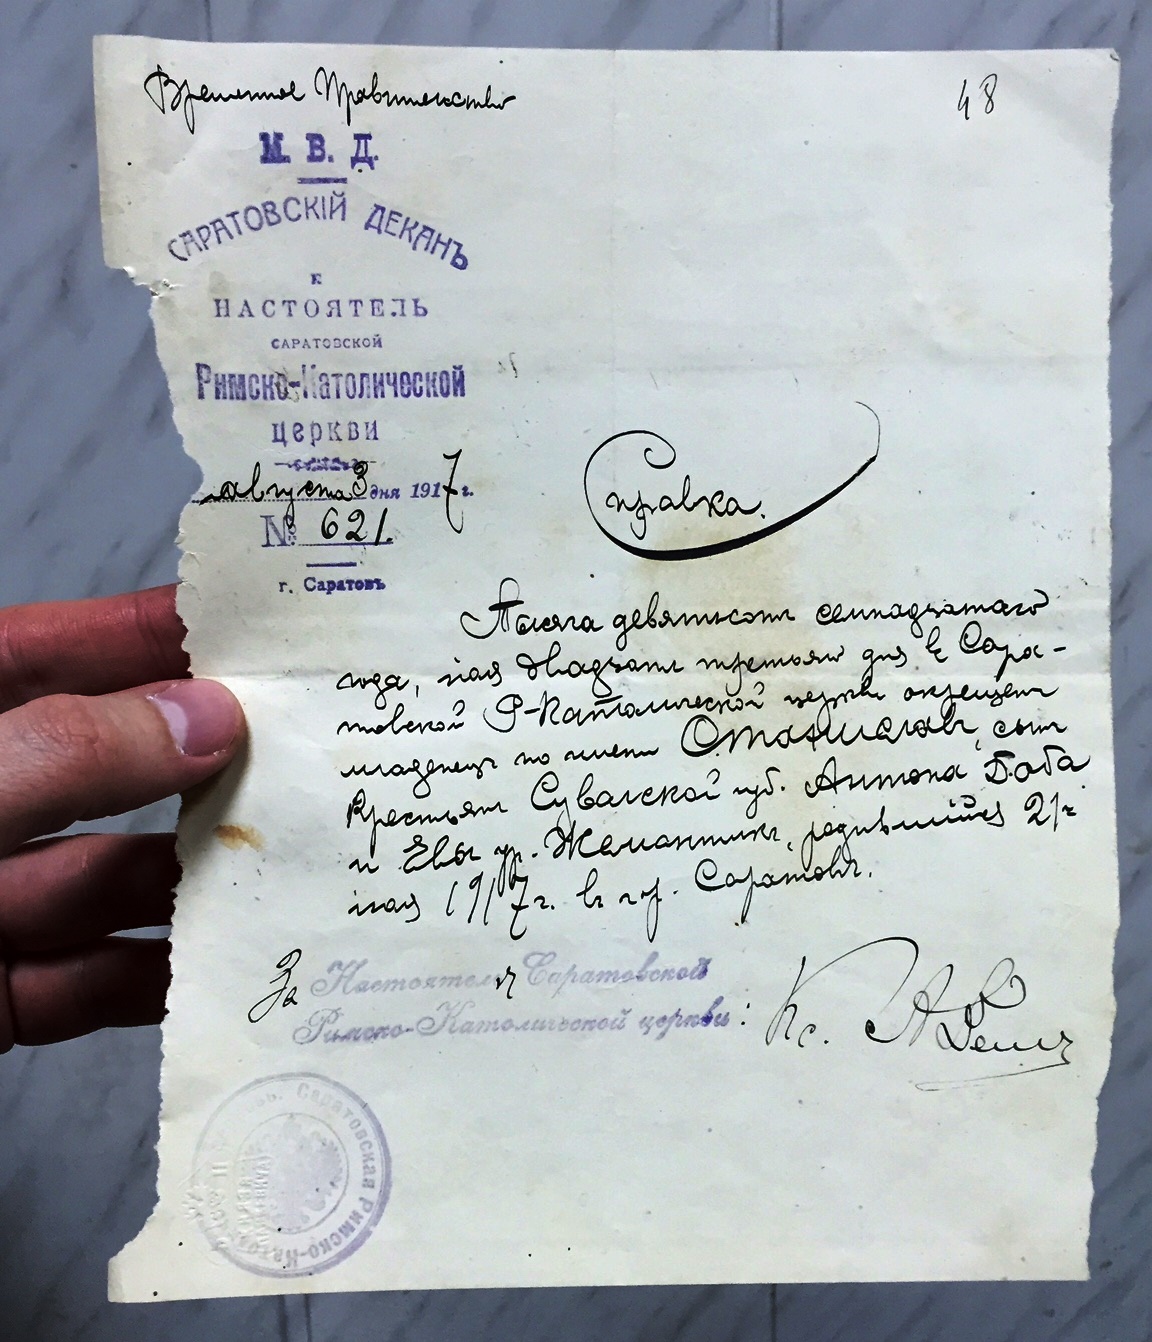 Временное Правительство
48
М. В. Д.
САРАТОВСКІЙ ДЕКАНЪ
и
НАСТОЯТЕЛЬ
САРАТОВСКОЙ
Римско-Католической
церкви
августа 3 дня 1917 г.
№ 621.
г. Саратовъ
Справка.
Тысяча девятьсотъ семнадцатаго
года, мая двадцать третьяго дня въ Сара-
товской Р-Католической церкви окрещенъ
младенецъ по имени Станиславъ, сынъ
крестьянъ Сувалкской губ. Антона Баба
и Евы ур. Жемантикъ, родившійся 21го
мая 1917 г. въ гор. Саратовѣ.
За Настоятеля Саратовской
Римско-Католической церкви:
Кс. А
Саратовская Римско-Като